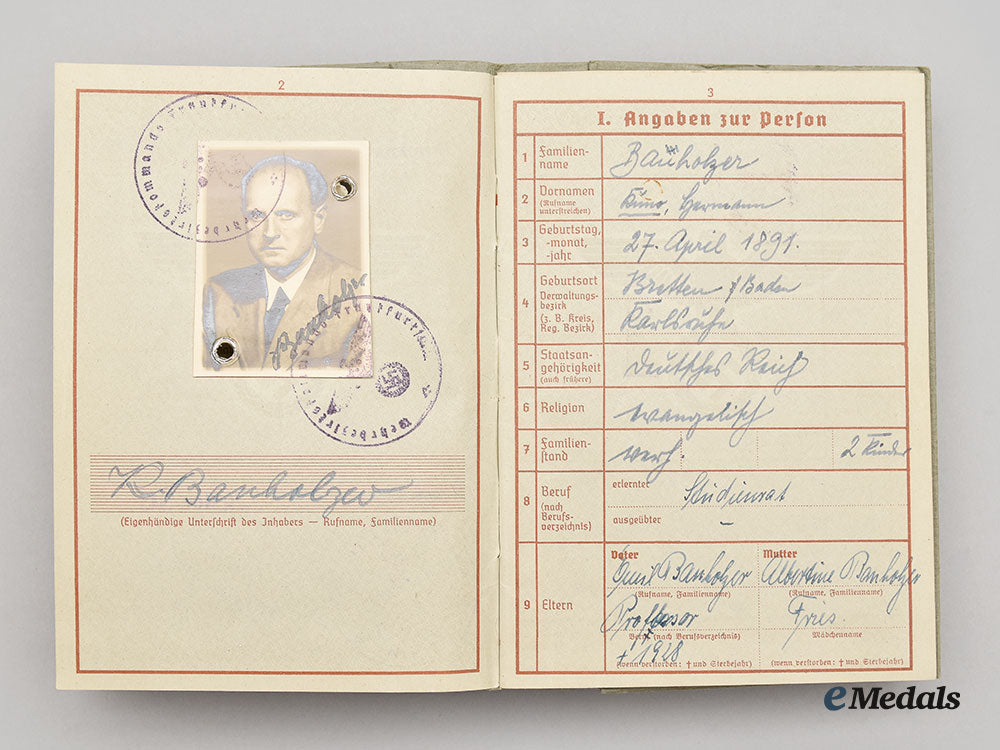 2
Banholzer
K. Banholzer
(Eigenhändige Unterschrift des Inhabers — Rufname, Familienname)
3
I. Angaben zur Person
1 Familien-
name
Banholzer
2 Vornamen
(Rufname
unterstreichen)
Kuno, Hermann
3 Geburtstag,
-monat,
-jahr
27. April 1891.
4 Geburtsort
Verwaltungs-
bezirk
(z. B. Kreis,
Reg. Bezirk)
Bretten / Baden
Karlsruhe
5 Staatsan-
gehörigkeit
(auch frühere)
Deutsches Reich
6 Religion
evangelisch
7 Familien-
stand
verh. 2 Kinder
8 Beruf
(nach
Berufs-
verzeichnis)
erlernter Studienrat
ausgeübter –
9 Eltern
Vater
Emil Banholzer
(Rufname, Familienname)
Professor
Beruf (nach Berufsverzeichnis)
† 1928
(wenn verstorben: † und Sterbejahr)
Mutter
Albertine Banholzer
(Rufname, Familienname)
Fries.
Mädchenname
(wenn verstorben: † und Sterbejahr)
eMedals